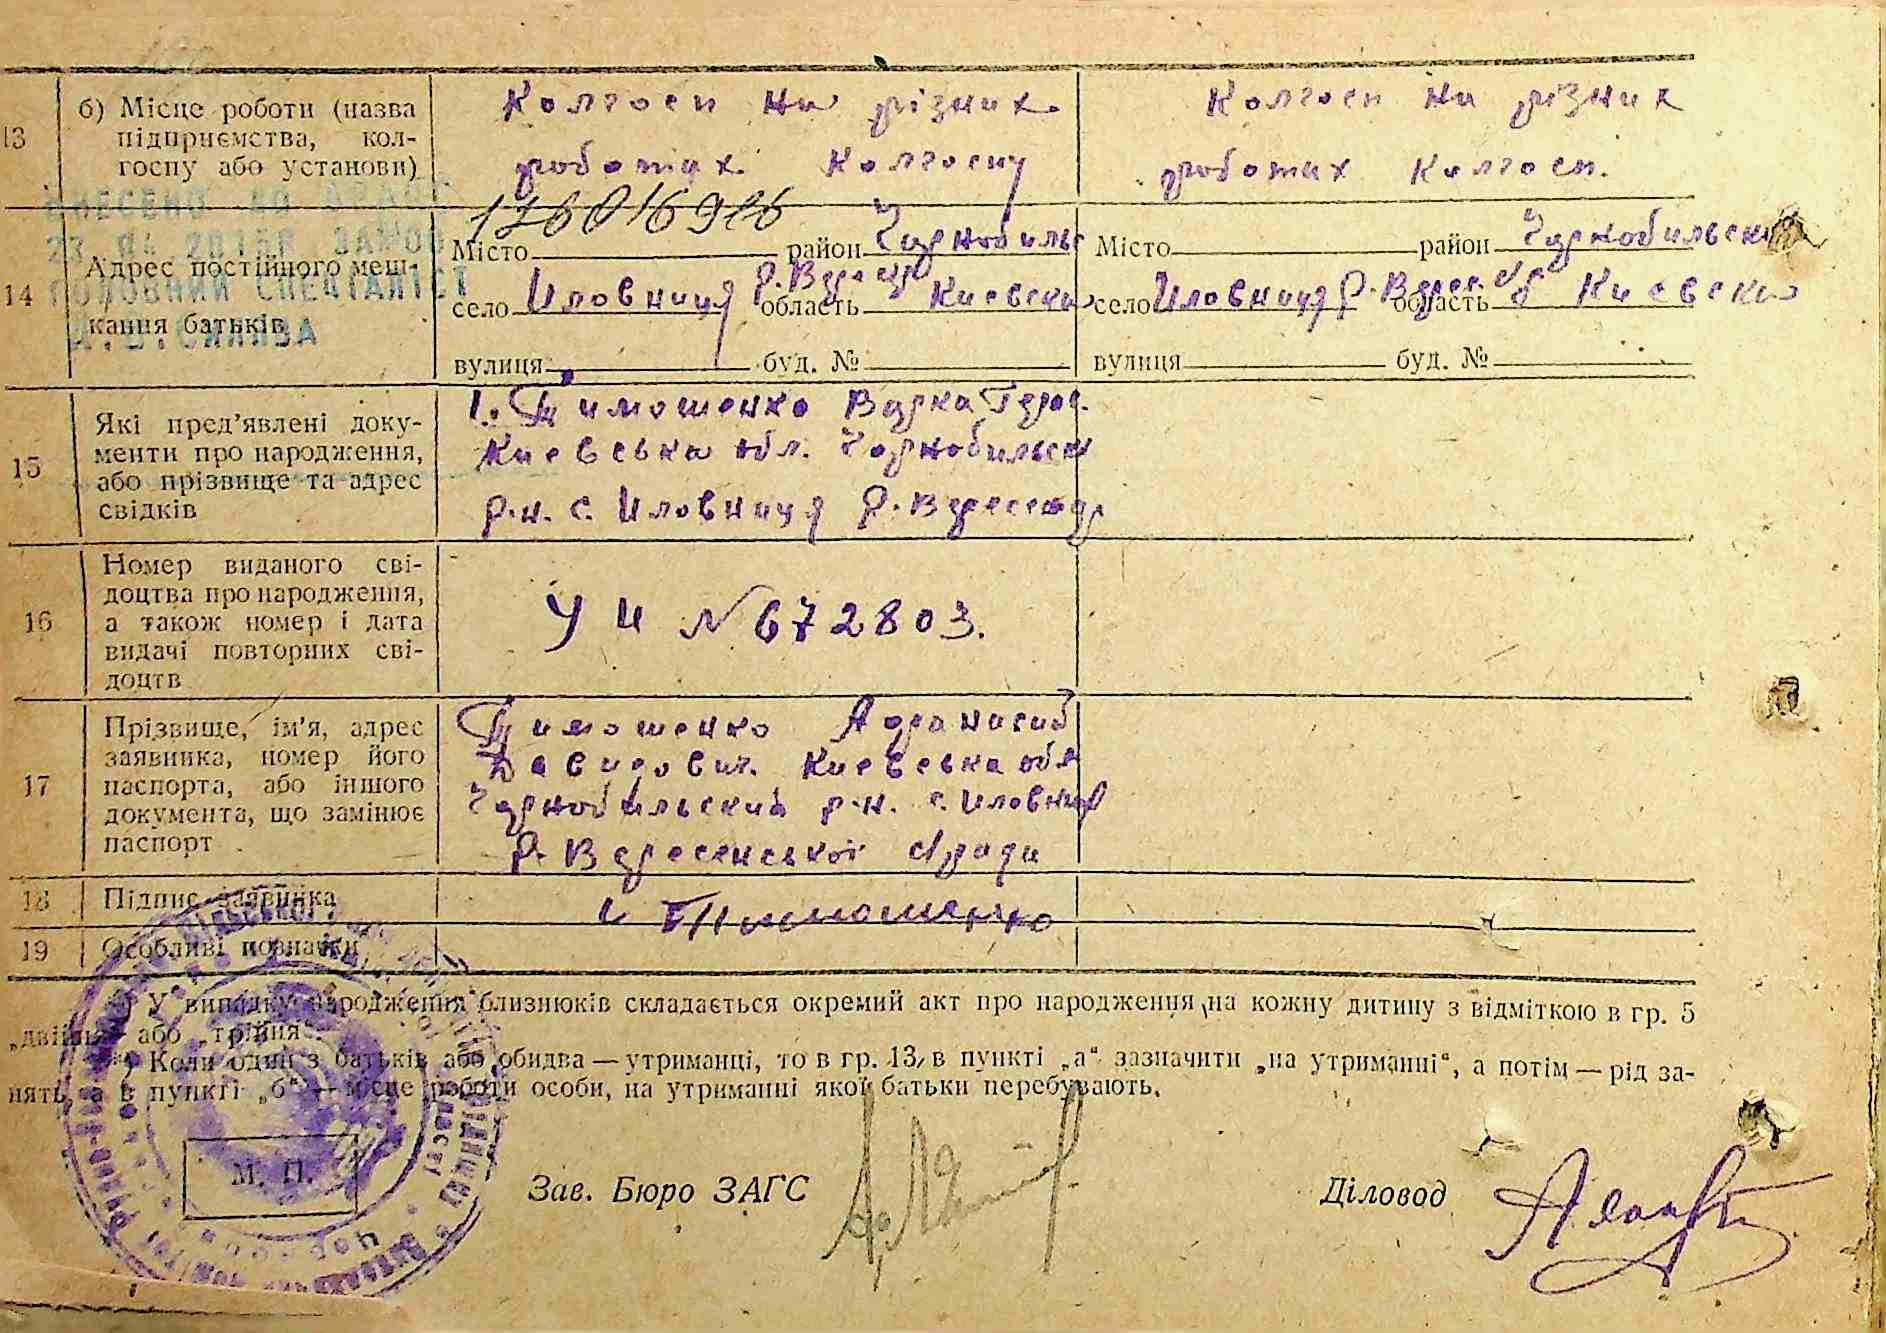 13 б) Місце роботи (назва
підприємства, кол-
госпу або установи)
Колгосп на різних
роботах колгоспу
Колгосп на різних
роботах колгосп.
14 Адрес постійного меш-
кання батьків
ГОЛОВНИЙ СПЕЦІАЛІСТ
Місто район Чарнобильс
село Иловниця Р. Верес область Киевска
вулиця буд. №
Місто район Чарнобильска
село Иловниця Р. Верес область Киевска
вулиця буд. №
15 Які пред'явлені доку-
менти про народження,
або прізвище та адрес
свідків
1. Тимошенко Варка Герас.
Киевська обл. Чорнобильск
р-н. с. Иловниця Р. Вересен
16 Номер виданого сві-
доцтва про народження,
а також номер і дата
видачі повторних сві-
доцтв
УИ № 672803.
17 Прізвище, ім'я, адрес
заявника, номер його
паспорта, або іншого
документа, що замінює
паспорт
Тимошенко Афанасий
Давидович. Киевська обл
Чарнобильский р-н. с. Иловниця
Р. Вересенської с/ради
18 Підпис заявника
Тимошенко
19 Особливі позначки
*) У випадку народження близнюків складається окремий акт про народження на кожну дитину з відміткою в гр. 5
„двійня“ або „трійня“.
**) Коли один з батьків або обидва — утриманці, то в гр. 13, в пункті „а“ зазначити „на утриманні“, а потім — рід за-
нять, а в пункті „б“ — місце роботи особи, на утриманні якої батьки перебувають.
М. П.
Зав. Бюро ЗАГС
Діловод